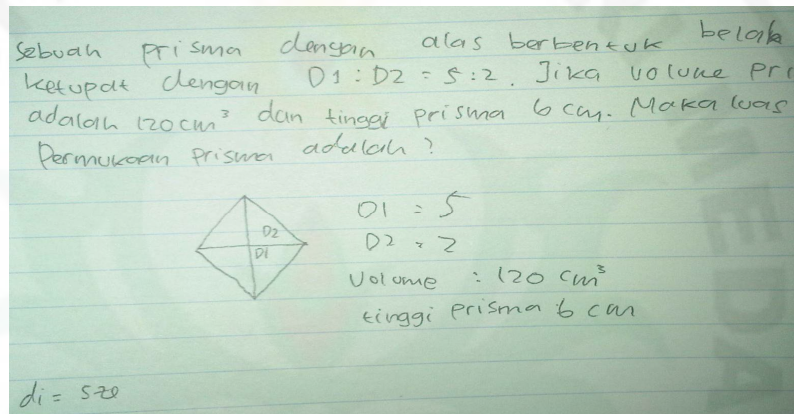 Sebuah prisma dengan alas berbentuk belah
ketupat dengan D1 : D2 = 5 : 2. Jika volume pri
adalah 120 cm³ dan tinggi prisma 6 cm. Maka luas
Permukaan prisma adalah ?
D2
D1
D1 = 5
D2 = 2
Volume : 120 cm³
tinggi prisma 6 cm
di =
MEDA